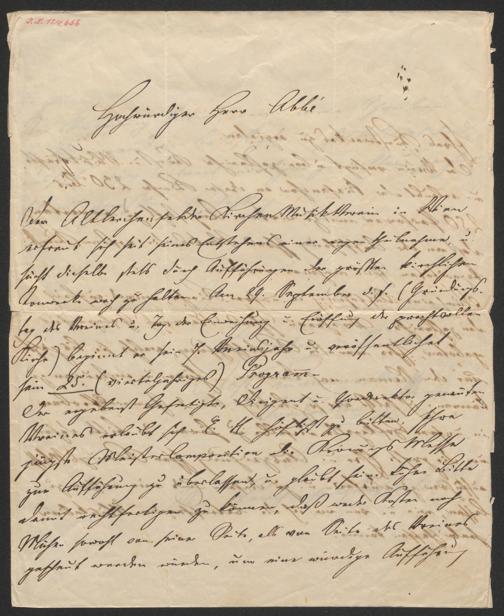 Hochwürdiger Herr Abbé
Der Altlerchenfelder Kirchen-Musik-Verein in Wien
erfreut sich seit seines Entstehens einer regen Theilnahme u
sucht dieselbe stets durch Aufführungen der größten kirchlichen
Tonwerke wach zu halten. Am 29. September d. J. (Gründungs-
tag des Vereines u. Tag der Einweihung u Eröffnung der prachtvollen
Kirche) beginnt er sein 7. Vereinsjahr u veröffentlichet
sein 25. (vierteljähriges) Program.
Der ergebenst Gefertigte, Dirigent u Gründer genannten
Vereines erlaubt sich zu bitten, Ihre
jüngste Meistercomposition die Krönungs Messe
zur Aufführung zu überlassen, u glaubt seine Bitte
damit rechtfertigen zu können, daß weder Kosten noch
Mühen sowohl von seiner Seite, als von Seite des Vereines
gescheut werden würden, um eine würdige Aufführung